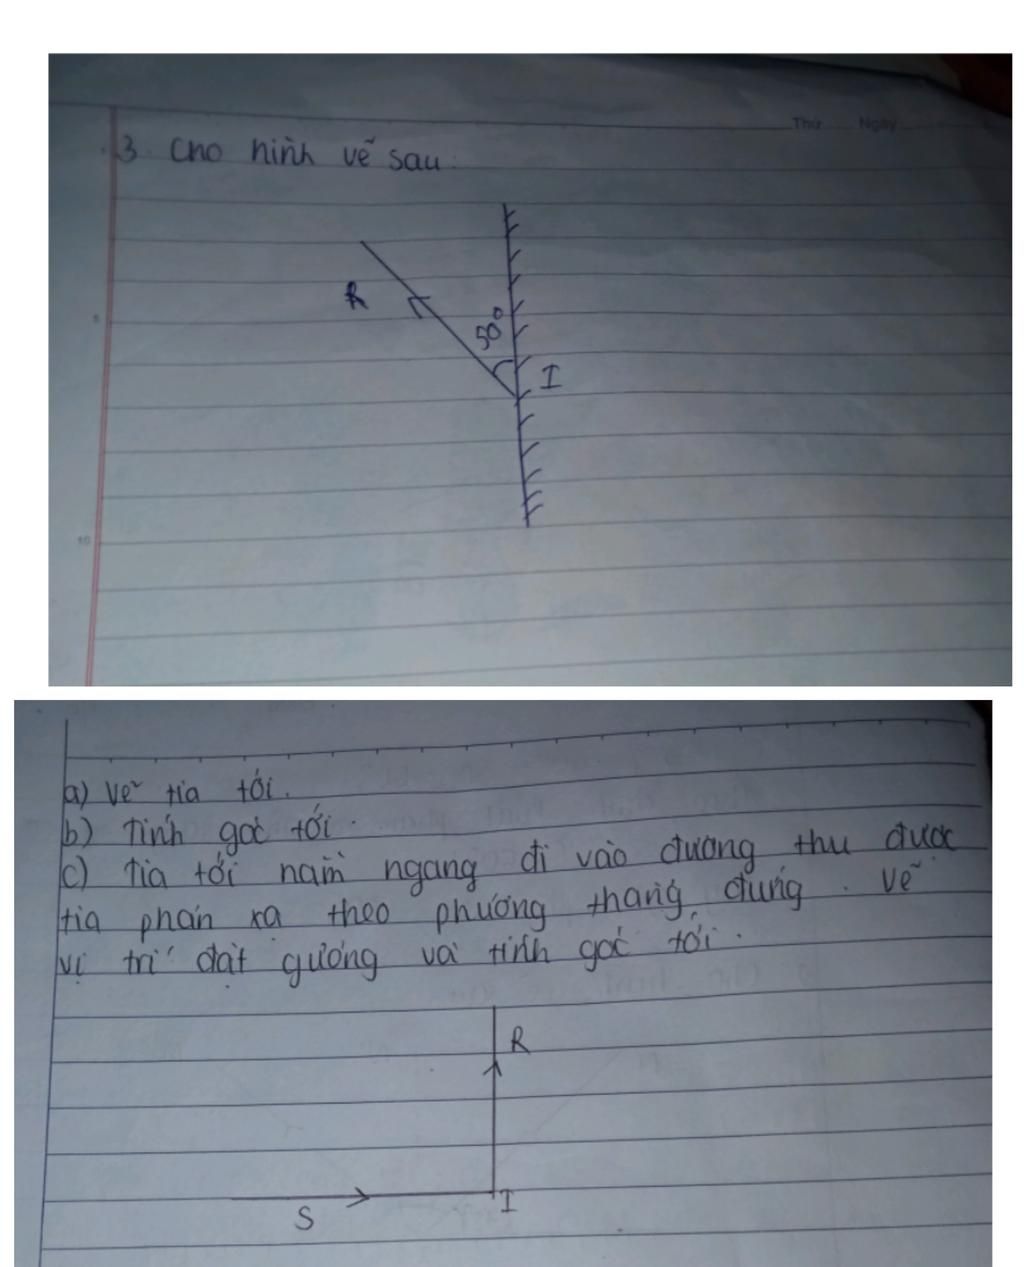 Thứ Ngày
3. Cho hình vẽ sau:
R
50°
5
I
10
a) Vẽ tia tới.
b) Tính góc tới.
c) Tia tới nằm ngang đi vào đương thu được
tia phản xạ theo phương thẳng đứng. Vẽ
vị trí đặt gương và tính góc tới.
R
I
S